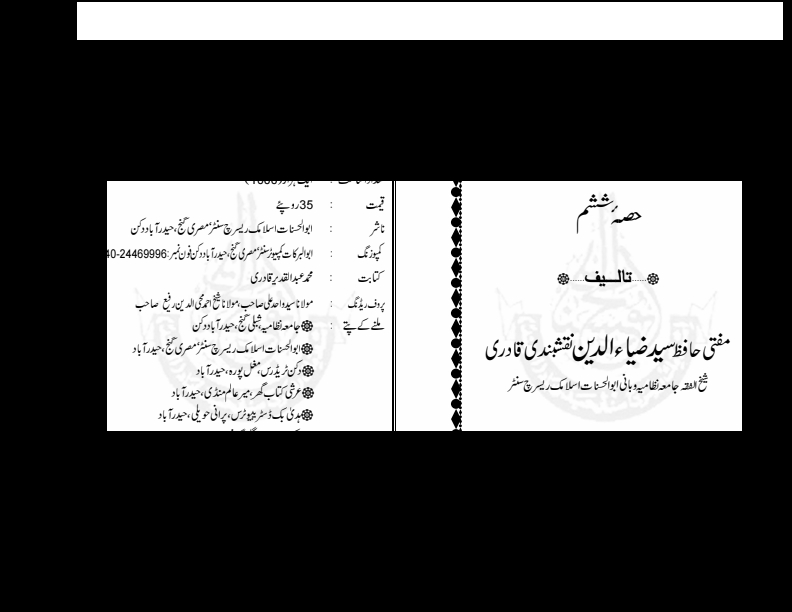 حصہ ششم
تالیف
مفتی حافظ سید ضیاء الدین نقشبندی قادری
شیخ الفقہ جامعہ نظامیہ وبانی ابوالحسنات اسلامک ریسرچ سنٹر
قیمت : 35 روپئے
ناشر : ابوالحسنات اسلامک ریسرچ سنٹر' مصری گنج، حیدرآباد دکن
کمپوزنگ : ابوالبرکات کمپیوٹر سنٹر' مصری گنج، حیدرآباد دکن فون نمبر: 40-24469996
کتابت : محمد عبدالقدیر قادری
پروف ریڈنگ : مولانا سید واحد علی صاحب، مولانا شیخ احمد محی الدین رفیع صاحب
ملنے کے پتے : جامعہ نظامیہ، شبلی گنج، حیدرآباد دکن
ابوالحسنات اسلامک ریسرچ سنٹر' مصری گنج، حیدرآباد
دکن ٹریڈرس، مغل پورہ، حیدرآباد
عرشی کتاب گھر، میر عالم منڈی، حیدرآباد
ہدیٰ بک ڈسٹری بیوٹرس، پرانی حویلی، حیدرآباد